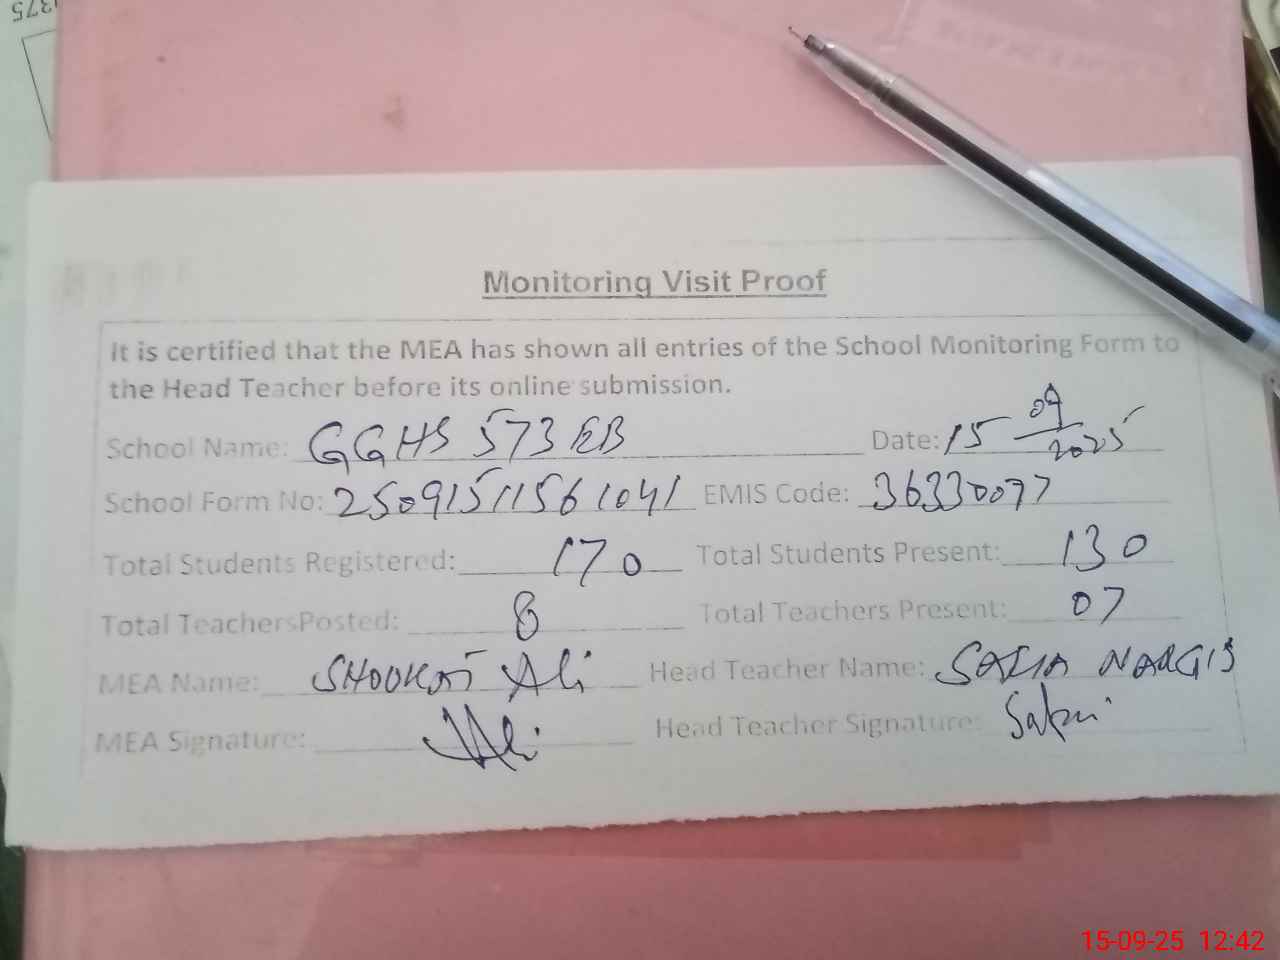 375
Monitoring Visit Proof
It is certified that the MEA has shown all entries of the School Monitoring Form to
the Head Teacher before its online submission.
School Name: GGHS 573 EB Date: 15 09/2025
School Form No: 25091511561041 EMIS Code: 36330077
Total Students Registered: 170 Total Students Present: 130
Total TeachersPosted: 8 Total Teachers Present: 07
MEA Name: SHOUKAT Ali Head Teacher Name: SAFIA NARGIS
MEA Signature: Ali Head Teacher Signature:
15-09-25 12:42